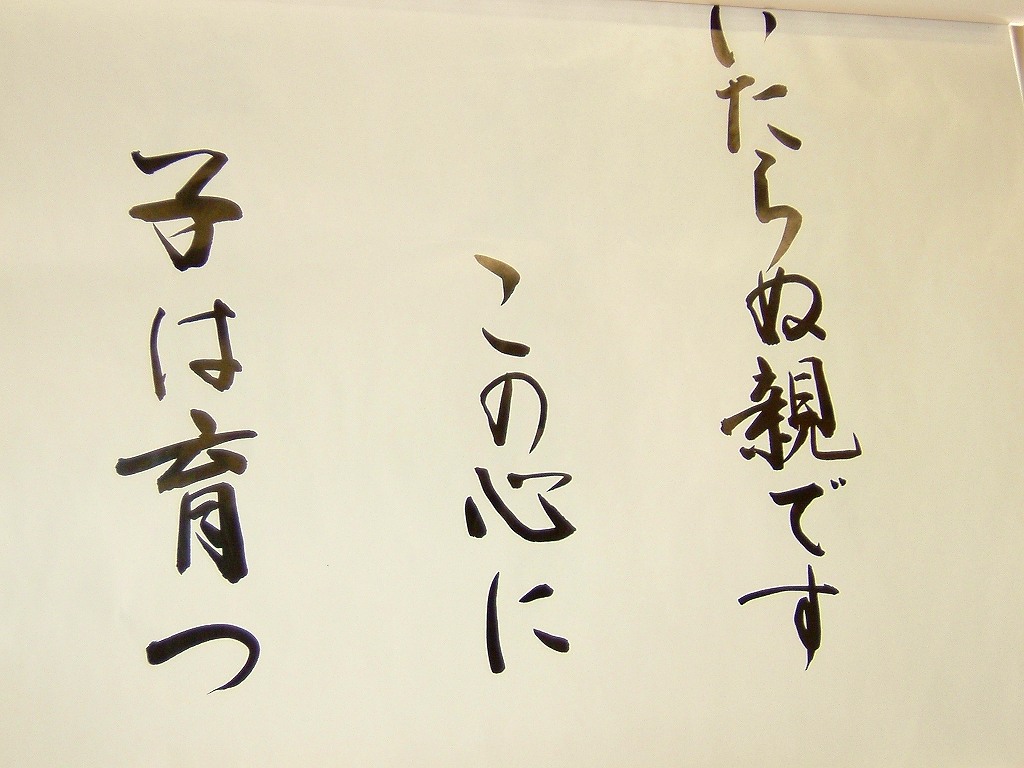 いたらぬ親です
この心に
子は育つ